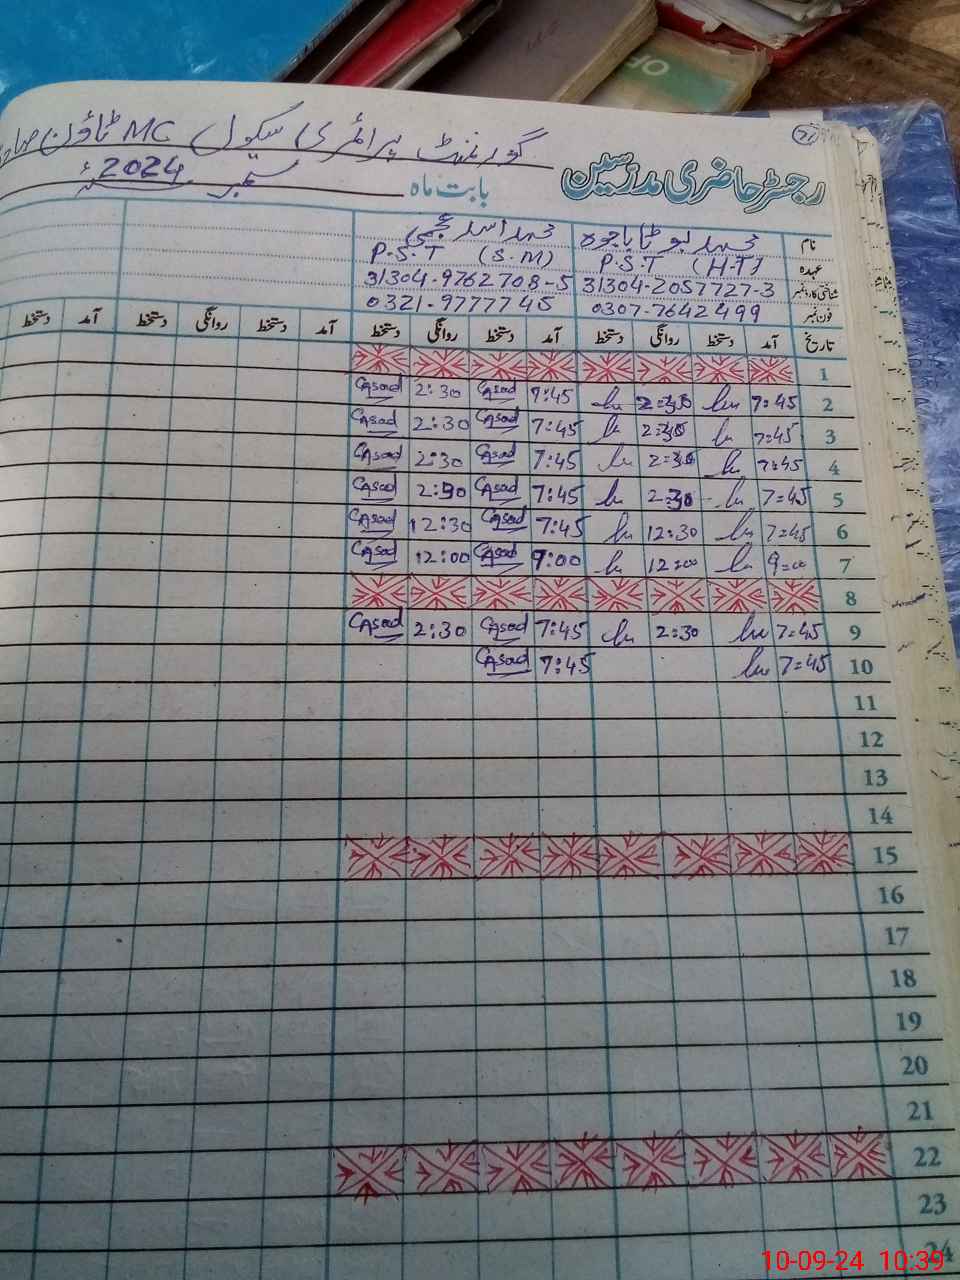 گورنمنٹ پرائمری سکول MC ٹاؤن
رجسٹر حاضری مدرسین
بابت ماہ ستمبر 2024ء
نام محمد بوٹا باجوہ محمد اسد
عہدہ P.S.T (H.T) P.S.T (S.M)
شناختی کارڈ نمبر 31304-2057727-3 31304-9762708-5
فون نمبر 0307-7642499 0321-9777745
تاریخ آمد دستخط روانگی دستخط آمد دستخط روانگی دستخط آمد دستخط روانگی دستخط آمد دستخط
1
2 7:45 2:30 7:45 Asad 2:30 Asad
3 7:45 2:30 7:45 Asad 2:30 Asad
4 7:45 2:30 7:45 Asad 2:30 Asad
5 7:45 2:30 7:45 Asad 2:30 Asad
6 7:45 12:30 7:45 Asad 12:30 Asad
7 9:00 12:00 9:00 Asad 12:00 Asad
8
9 7:45 2:30 7:45 Asad 2:30 Asad
10 7:45 7:45 Asad
11
12
13
14
15
16
17
18
19
20
21
22
23
24
10-09-24 10:39